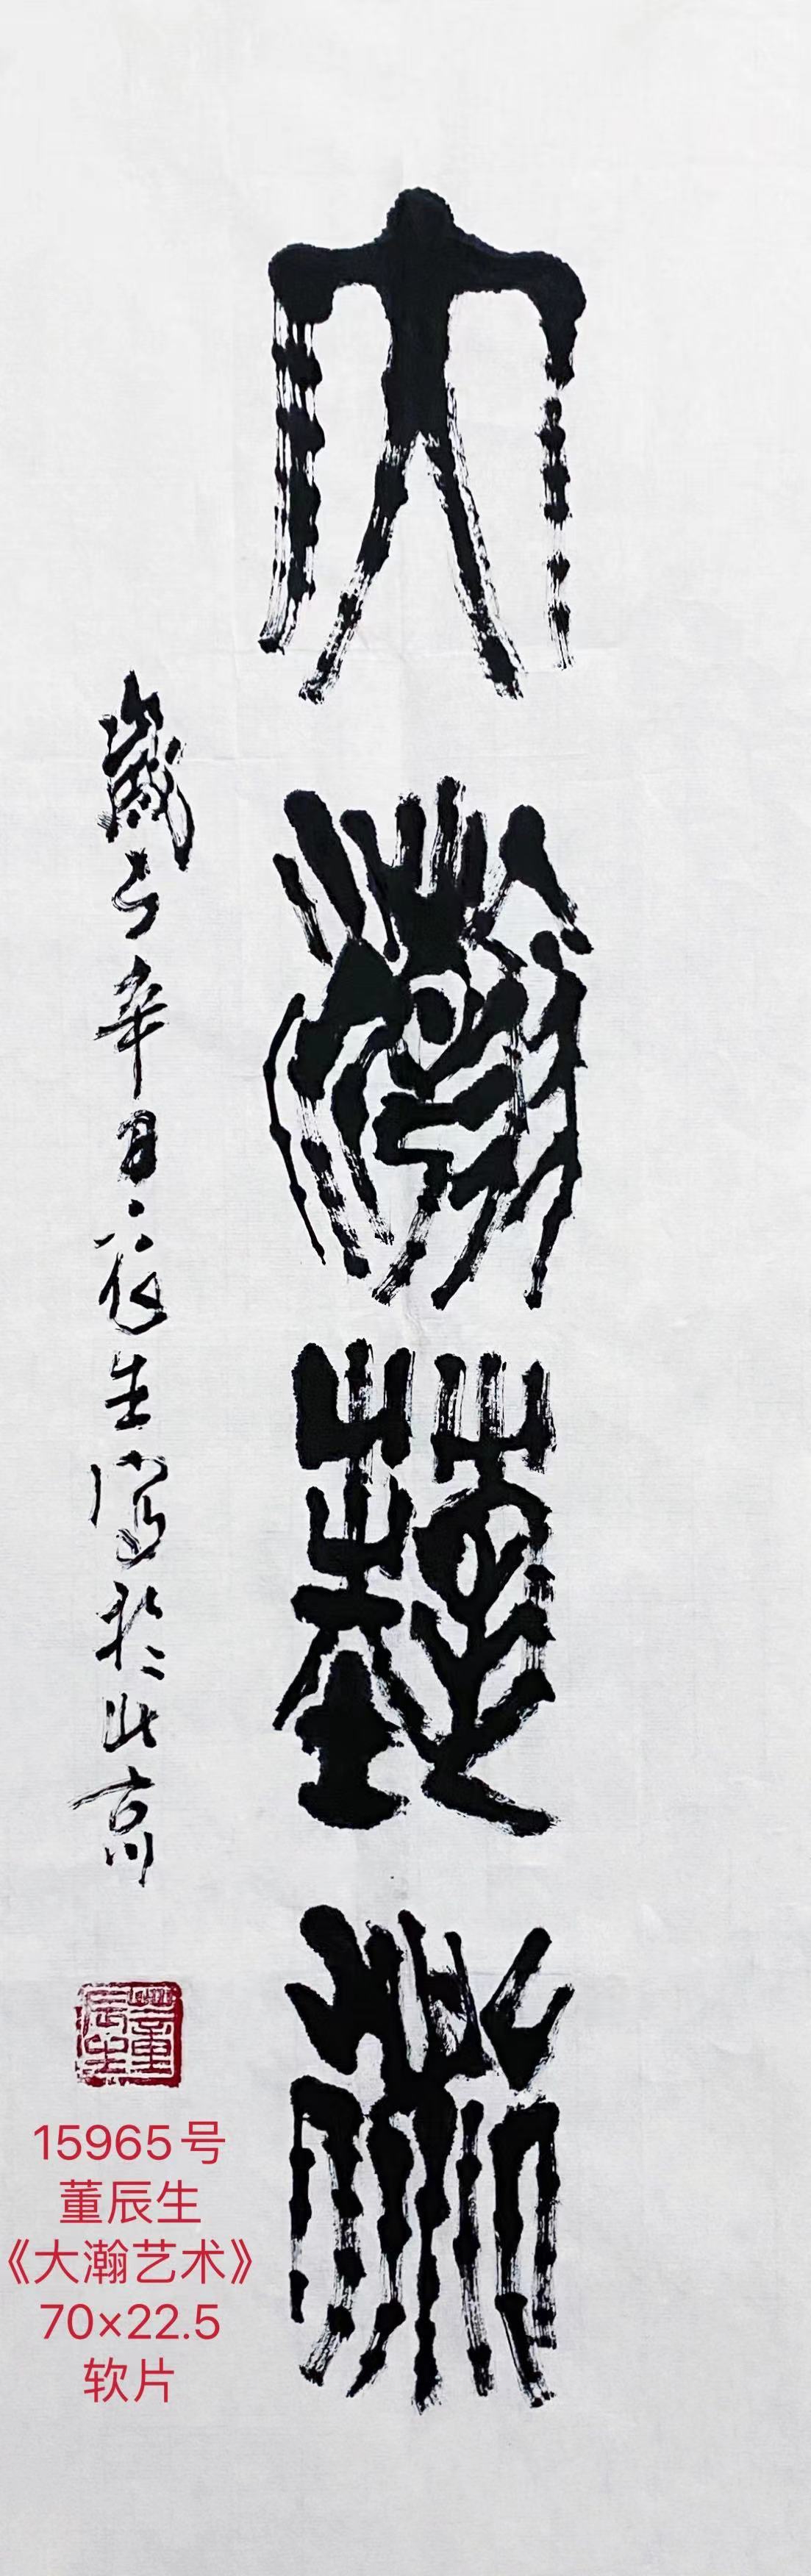 大瀚藝術
歲乙未年冬月辰生寫於北京
董辰生
15965号
董辰生
《大瀚艺术》
70×22.5
软片